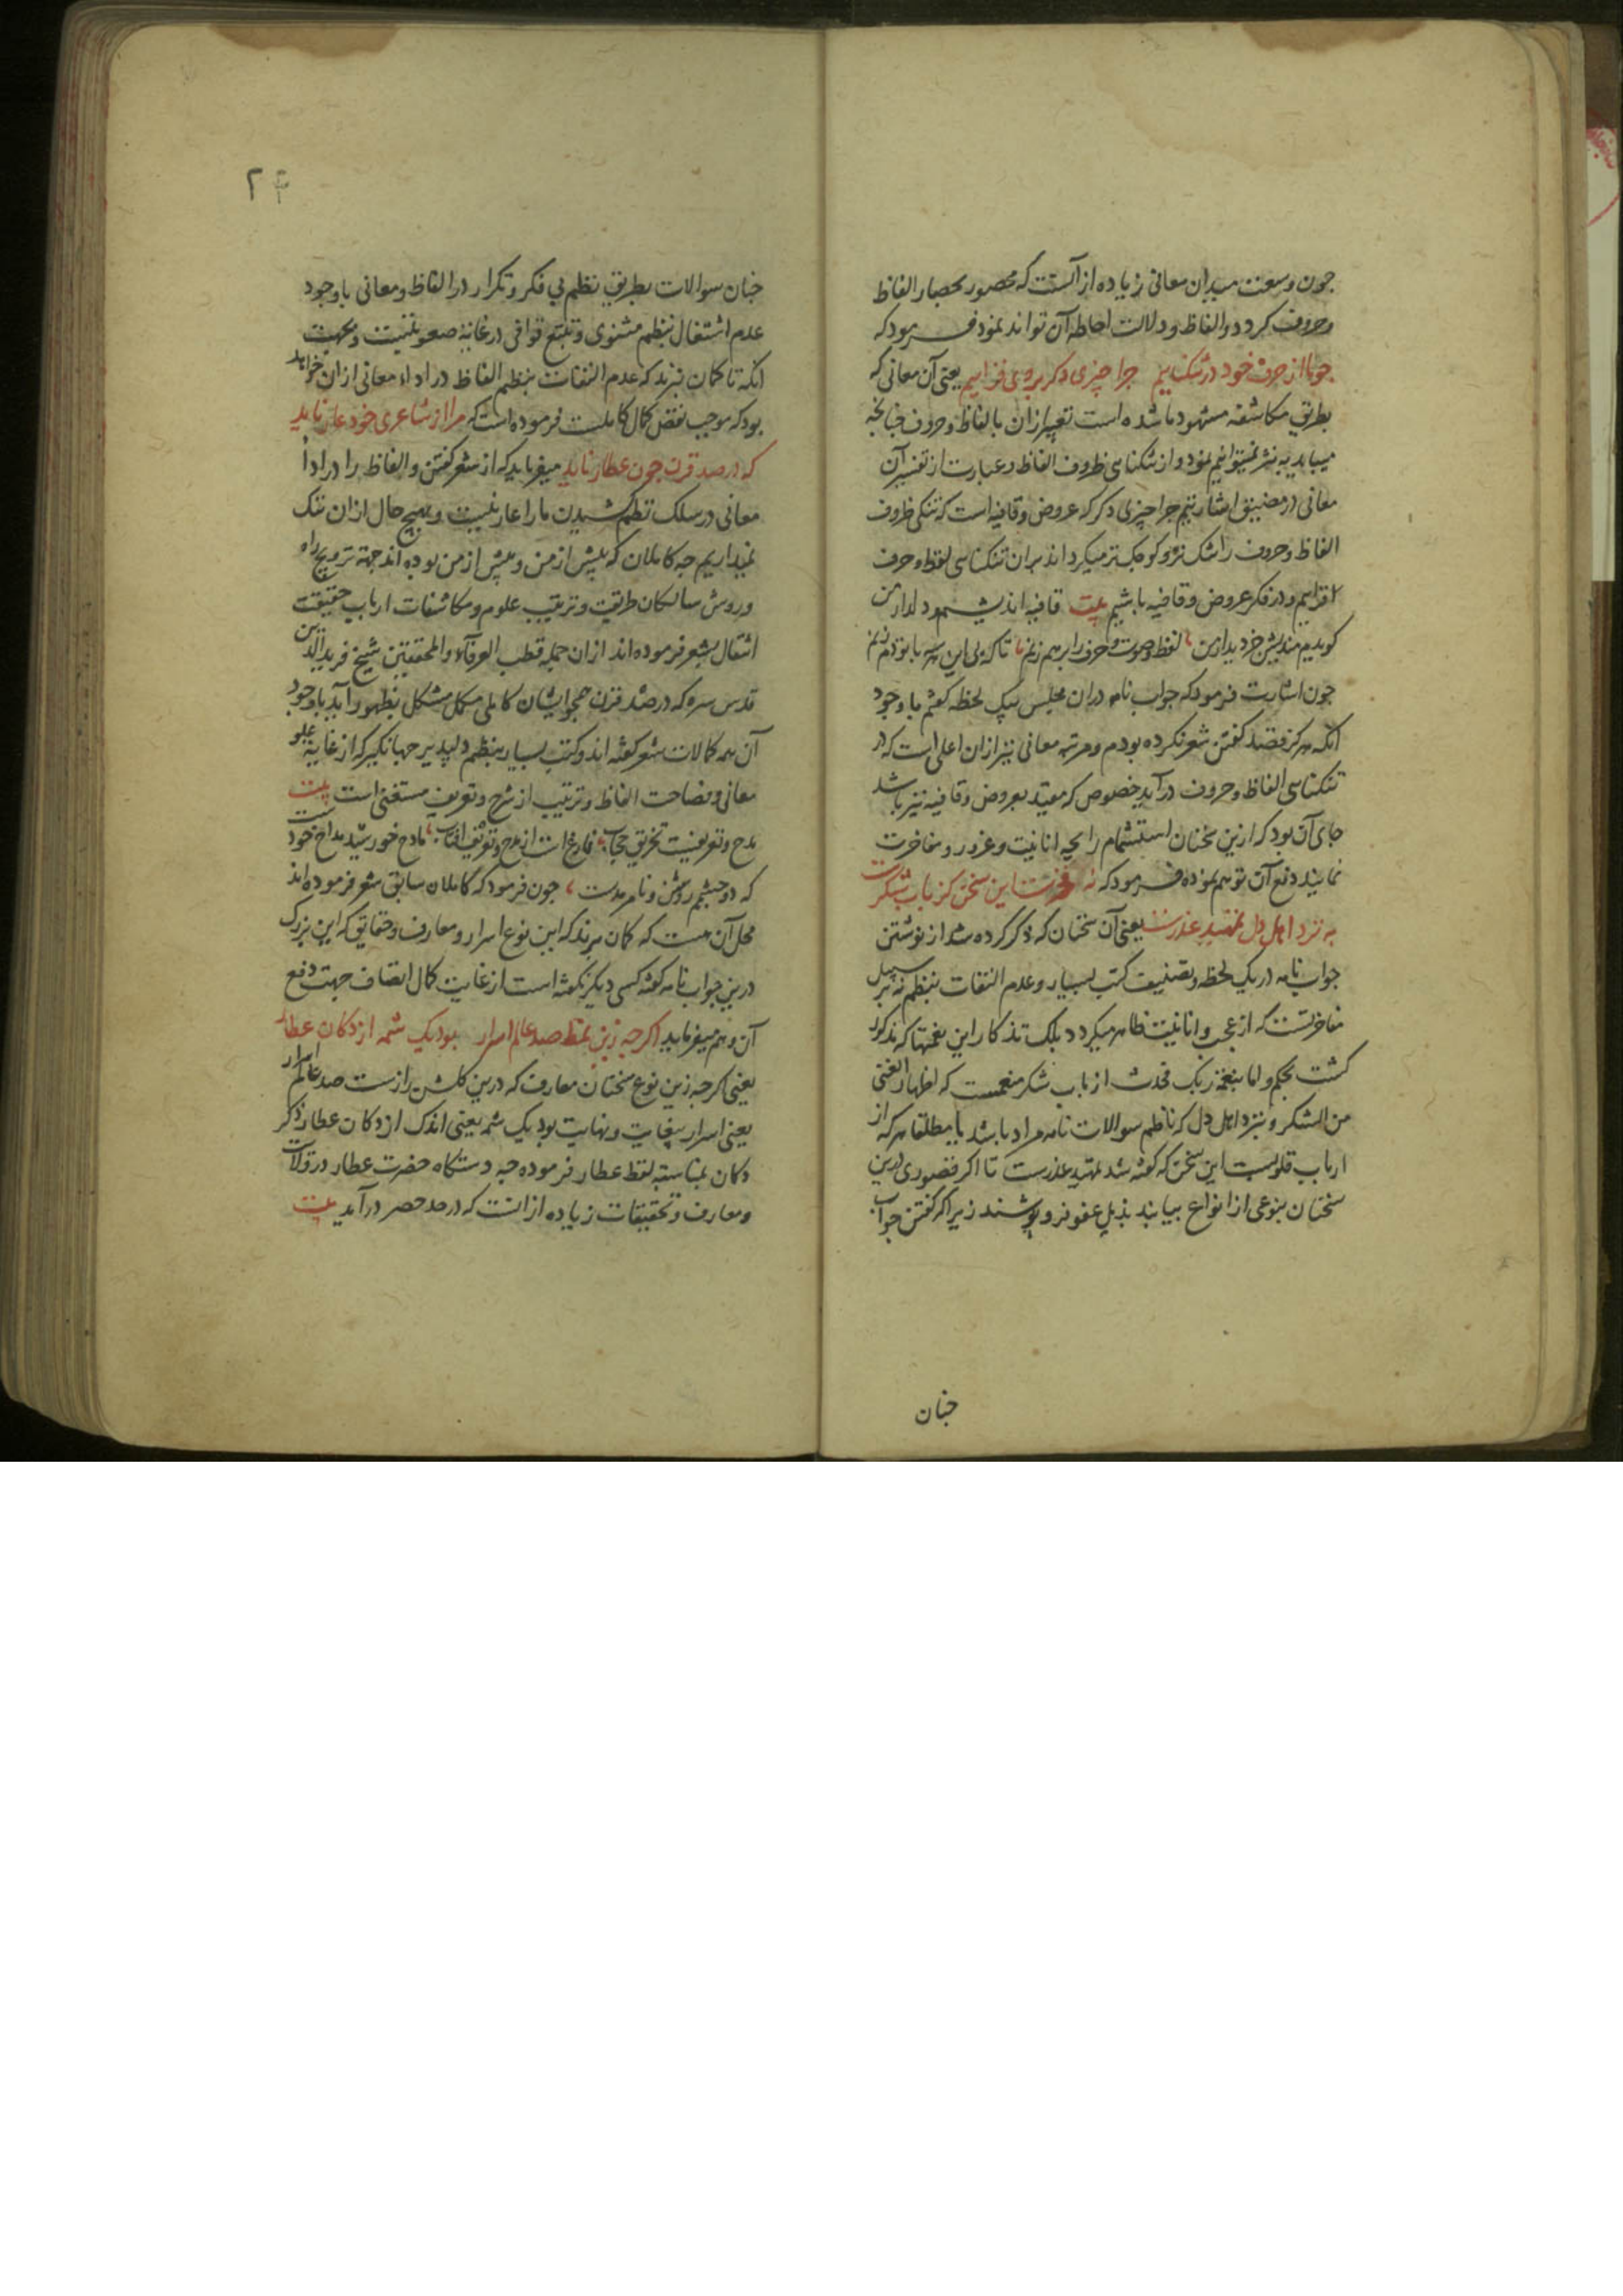 جون وسعت میدان معانی زیاده از آنست که محصور بحصار الفاظ
وحروف کردد والفاظ ودلالت احاطه آن تواند نمود فرمود که
جو ما از حرف خود در تنکناییم جرا جیزی دکر بروی فزاییم یعنی آن معانی که
بطریق مکاشفه مشهود ما شده است تعبیر ازان بالفاظ وحروف جنانجه
میباید به نثر نمیتوانیم نمود و از تنکنای ظروف الفاظ وعبارت از تفسیر آن
معانی در مضیق جرا جیزی دکر که عروض وقافیه است که تنکی ظروف
الفاظ وحروف را تنک تر و کوجکتر میکرداند بران تنکنای لفظ وحرف
افزاییم و در فکر عروض وقافیه باشیم بیت قافیه اندیشم ودلدار من
کویدم مندیش جز دیدار من لفظ وصوت وحرف را بر هم زنم تا که بی این هر سه با تو دم زنم
جون اشارت فرمود که جواب نامه دران مجلس بیک لحظه کفتم با وجود
آنکه هرکز قصد کفتن شعر نکرده بودم ومرتبه معانی نیز ازان اعلی است که در
تنکنای الفاظ وحروف درآید خصوص که مقید بعروض وقافیه نیز باشد
جای آن بود که ازین سخنان استشمام رایحه انانیت وغرور ومفاخرت
نمایند دفع آن توهم نموده فرمود که نه فخرست این سخن کز باب شکرست
به نزد اهل دل تمهید عذرست یعنی آن سخنان که ذکر کرده شد از نوشتن
جواب نامه در یک لحظه وتصنیف کتب بسیار وعدم التفات بنظم نه بر سبیل
مفاخرتست که از عجب وانانیت ظاهر میکردد بلک تذکار این نعمتها که مذکور
کشت بحکم واما بنعمة ربک فحدث از باب شکر منعمست که اظهار الغنی
من الشکر و بنزد اهل دل که ناظم سوالات نامه مراد باشد یا مطلقا هرکه از
ارباب قلوبست این سخن که کفته شد تمهید عذرست تا اکر قصوری درین
سخنان بنوعی از انواع بیابند بذیل عفو فرو پوشند زیرا که کفتن جواب
جنان
۲
جنان سوالات بطریق نظم بی فکر وتکرار در الفاظ ومعانی با وجود
عدم اشتغال بنظم مثنوی وتتبع قوافی در غایة صعوبتست وبجهت
آنکه تا کمان نبرند که عدم التفات بنظم الفاظ در اداء معانی ازان خواهد
بود که موجب نقص کمال کاملست فرموده است که مرا از شاعری خود عار ناید
که در صد قرن جون عطار ناید میفرماید که از شعر کفتن والفاظ را در اداٴ
معانی در سلک نظم کشیدن ما را عار نیست وبهیج حال ازان ننک
نمیداریم جه کاملان که بیش از من وپیش از من بوده اند جهة ترویج راه
وروش سالکان طریقت وترتیب علوم ومکاشفات ارباب حقیقت
اشتغال بشعر فرموده اند ازان جمله قطب العرفآء والمحققین شیخ فرید الدین
قدس سره که در صد قرن همجو ایشان کاملی مکمل مشکل بظهور آید با وجود
آن همه کمالات شعر کفته اند وکتب بسیار بنظم دلپذیر جهانکیر که از غایة علو
معانی وفصاحت الفاظ وترتیب از شرح وتعریف مستغنی است بیت
مدح وتعریفست تخریق حجاب فارغ است از مدح وتعریف آفتاب مادح خورشید مداح خودست
که دو جشمم روشن ونامرمدست جون فرمود که کاملان سابق شعر فرموده اند
محل آن هست که کمان برند که این نوع اسرار ومعارف وحقایق که این بزرک
درین جواب نامه کفته کسی دیکر نکفته است از غایت کمال انصاف جهت دفع
آن وهم میفرماید اکر جه زین نمط صد عالم اسرار بود یک شمه از دکان عطار
یعنی اکر جه زین نوع سخنان معارف که درین کلشن رازست صد عالم اسرار
یعنی اسرار بیغایت ونهایت بود یک شمه یعنی اندک از دکان عطار ذکر
دکان بمناسبة لفظ عطار فرموده جه دستکاه حضرت عطار در
ومعارف وتحقیقات زیاده ازانست که در حد حصر درآمد بیت